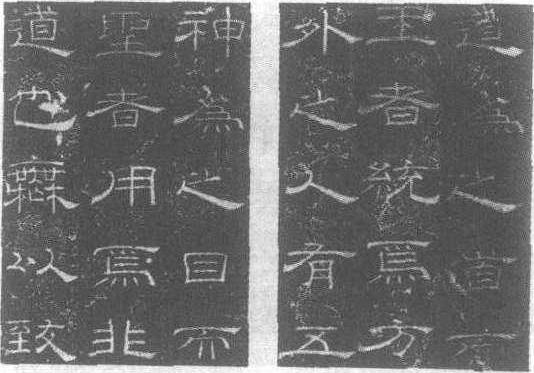 道為之首而
王者統焉方
外之人有五
神為之目而
聖者用焉非
道也無以致